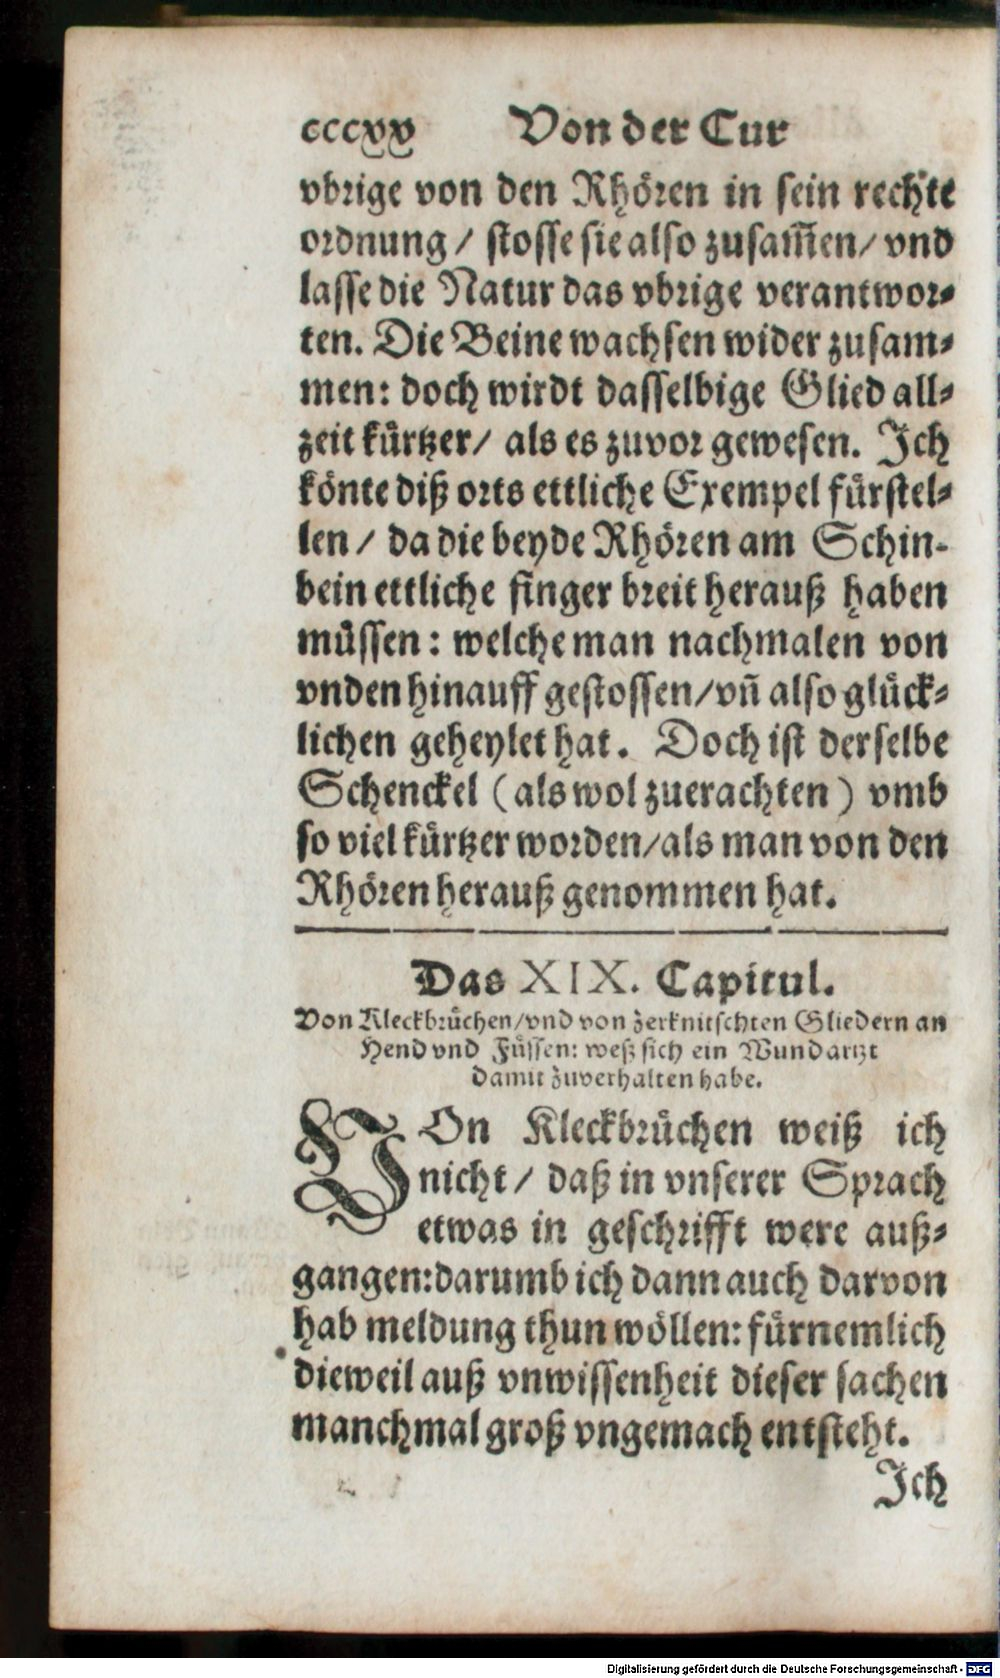 cccxx Von der Cur
vbrige von den Rhören in sein rechte
ordnung / stosse sie also zusam̃en/ vnd
lasse die Natur das vbrige verantwor⸗
ten. Die Beine wachsen wider zusam⸗
men: doch wirdt dasselbige Glied all⸗
zeit kürtzer/ als es zuvor gewesen. Ich
könte diß orts ettliche Exempel fürstel⸗
len / da die beyde Rhören am Schin-
bein ettliche finger breit herauß haben
müssen: welche man nachmalen von
vnden hinauff gestossen/vñ also glück⸗
lichen geheylet hat. Doch ist derselbe
Schenckel (als wol zuerachten) vmb
so viel kürtzer worden/als man von den
Rhören herauß genommen hat.
Das XIX. Capitul.
Von Kleckbrüchen/vnd von zerknitschten Gliedern an
Hend vnd Füssen: weß sich ein Wundartzt
damit zuverhalten habe.
VOn Kleckbrüchen weiß ich
nicht / daß in vnserer Sprach
etwas in geschrifft were auß⸗
gangen:darumb ich dann auch darvon
hab meldung thun wöllen: fürnemlich
dieweil auß vnwissenheit dieser sachen
manchmal groß vngemach entsteht.
Ich
Digitalisierung gefördert durch die Deutsche Forschungsgemeinschaft - DFG